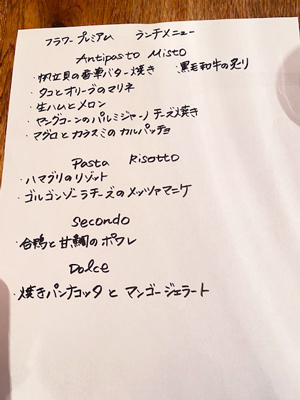 フラワープレミアム ランチメニュー
Antipasto Misto
・帆立貝の香草バター焼き ・黒毛和牛の炙り
・タコとオリーブのマリネ
・生ハムとメロン
・ヤングコーンのパルミジャーノチーズ焼き
・マグロとカラスミのカルパッチョ
Pasta Risotto
・ハマグリのリゾット
・ゴルゴンゾーラチーズのメッツァマニケ
Secondo
・合鴨と甘鯛のポワレ
Dolce
・焼きパンナコッタと マンゴージェラート